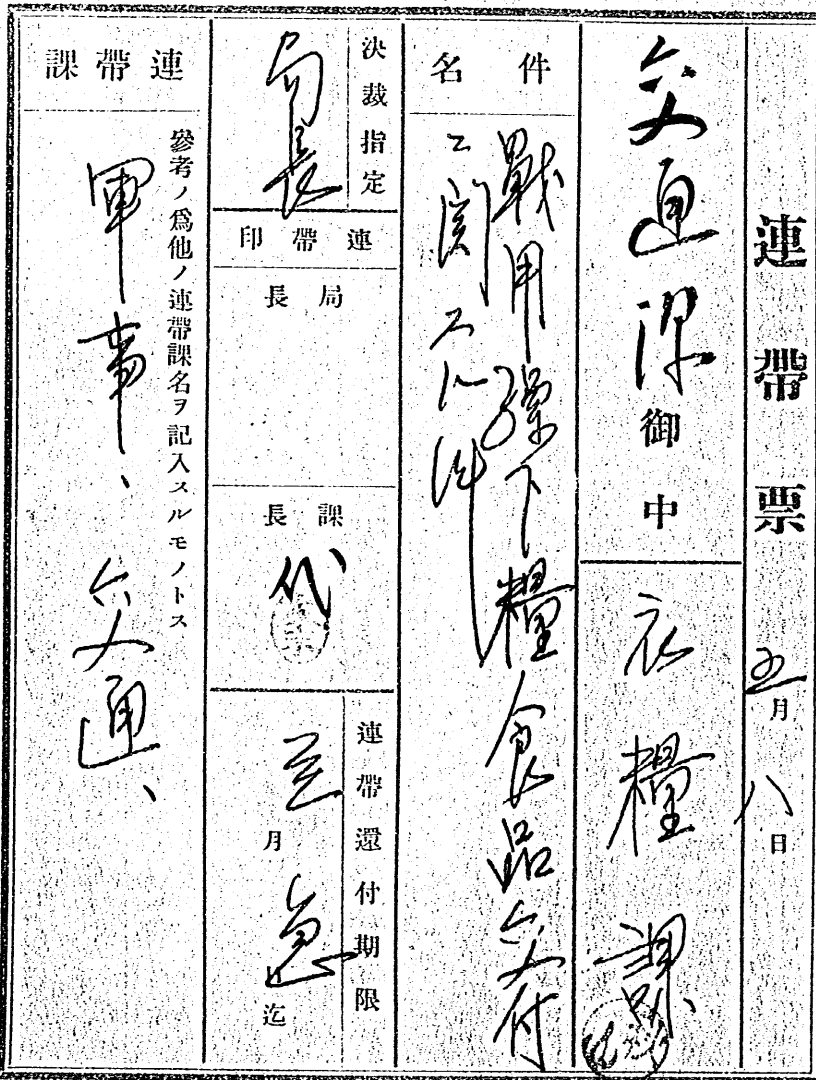 連帶票
五月八日
交通課御中
衣糧課
件名
戰用壜下糧食品交付
ニ関スル件
決裁指定
局長
連帶印
局長
課長
代
連帶還付期限
至月急迄
連帶課
參考ノ爲他ノ連帶課名ヲ記入スルモノトス
軍事、交通、